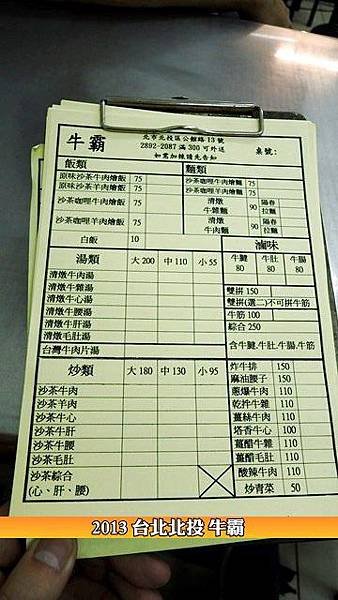 牛霸
北市北投區公館路13號
2892-2087 滿 300 可外送
如需加辣請先告知
桌號:
飯類 麵類
原味沙茶牛肉燴飯 75 沙茶咖哩牛肉燴麵 75
原味沙茶羊肉燴飯 75 沙茶咖哩羊肉燴麵 75
沙茶咖哩牛肉燴飯 75 清燉牛雜麵 90 陽春 拉麵
沙茶咖哩羊肉燴飯 75 清燉牛肉麵 90 陽春 拉麵
白飯 10 滷味
湯類 大 200 中 110 小 55 牛腱 80 牛肚 80 牛腸 80
清燉牛肉湯
清燉牛雜湯 雙拼 150
清燉牛心湯 雙拼(選二)不可拼牛筋
清燉牛腰湯 牛筋 100
清燉牛肝湯 綜合 250
清燉毛肚湯 含牛腱.牛肚.牛腸.牛筋
台灣牛肉片湯
炒類 大 180 中 130 小 95 炸牛排 150
麻油腰子 150
沙茶牛肉 蔥爆牛肉 110
沙茶羊肉 乾拌牛雜 110
沙茶牛心 薑絲牛肉 110
沙茶牛肝 塔香牛心 100
沙茶牛腰 薑醋牛雜 110
沙茶毛肚 薑醋毛肚 110
沙茶綜合 酸辣牛肉 110
(心、肝、腰) 炒青菜 50
2013 台北北投 牛霸